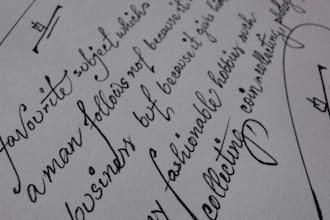 favourite subject which
a man follows not because it
business but because it give
fashionable hobbies such
collecting, coin collecting,